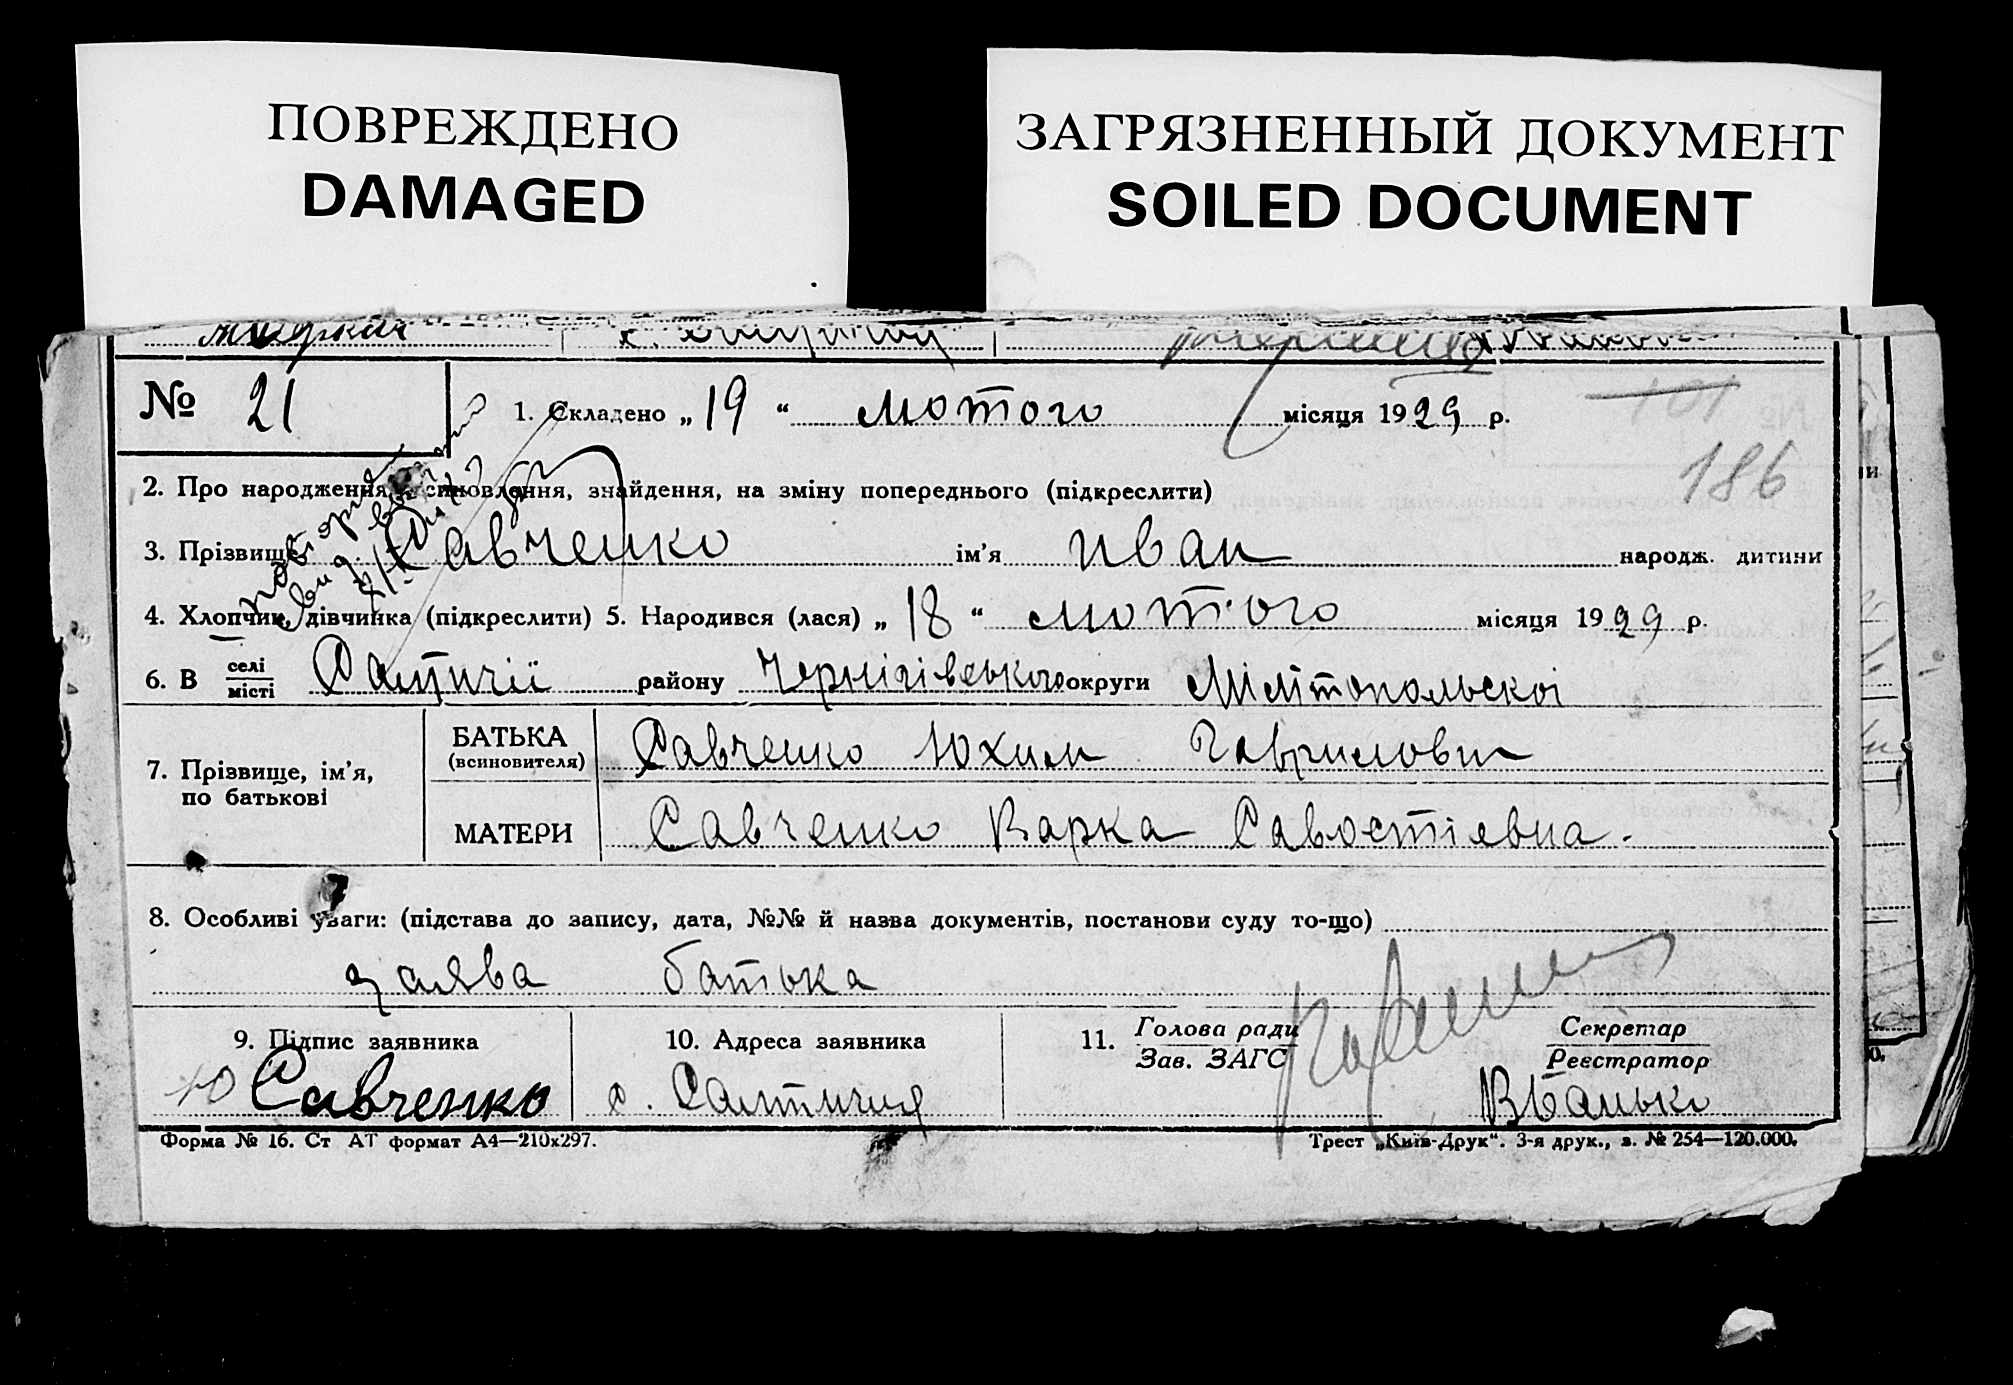 ПОВРЕЖДЕНО
DAMAGED
ЗАГРЯЗНЕННЫЙ ДОКУМЕНТ
SOILED DOCUMENT
№ 21
1. Складено „ 19 “ лютого місяця 1929 р.
101
186
2. Про народження, всиновлення, знайдення, на зміну попереднього (підкреслити)
3. Прізвище Савченко ім’я Иван народж. дитини
4. Хлопчик, дівчинка (підкреслити) 5. Народився (лася) „ 18 “ лютого місяця 1929 р.
6. В селі місті Салтичії району Чернігівського округи Мілітопольскої
7. Прізвище, ім’я, по батькові
БАТЬКА (всиновителя) Савченко Юхим Гаврилович
МАТЕРИ Савченко Варка Савостіявна.
8. Особливі уваги: (підстава до запису, дата, №№ й назва документів, постанови суду то-що)
заява батька
9. Підпис заявника
10. Адреса заявника
11. Голова ради Зав. ЗАГС
Секретар Реєстратор
Ю Савченко
с. Салтичия
Форма № 16. Ст АТ формат А4—210х297.
Трест „Київ-Друк“. 3-я друк., з. № 254—120.000.